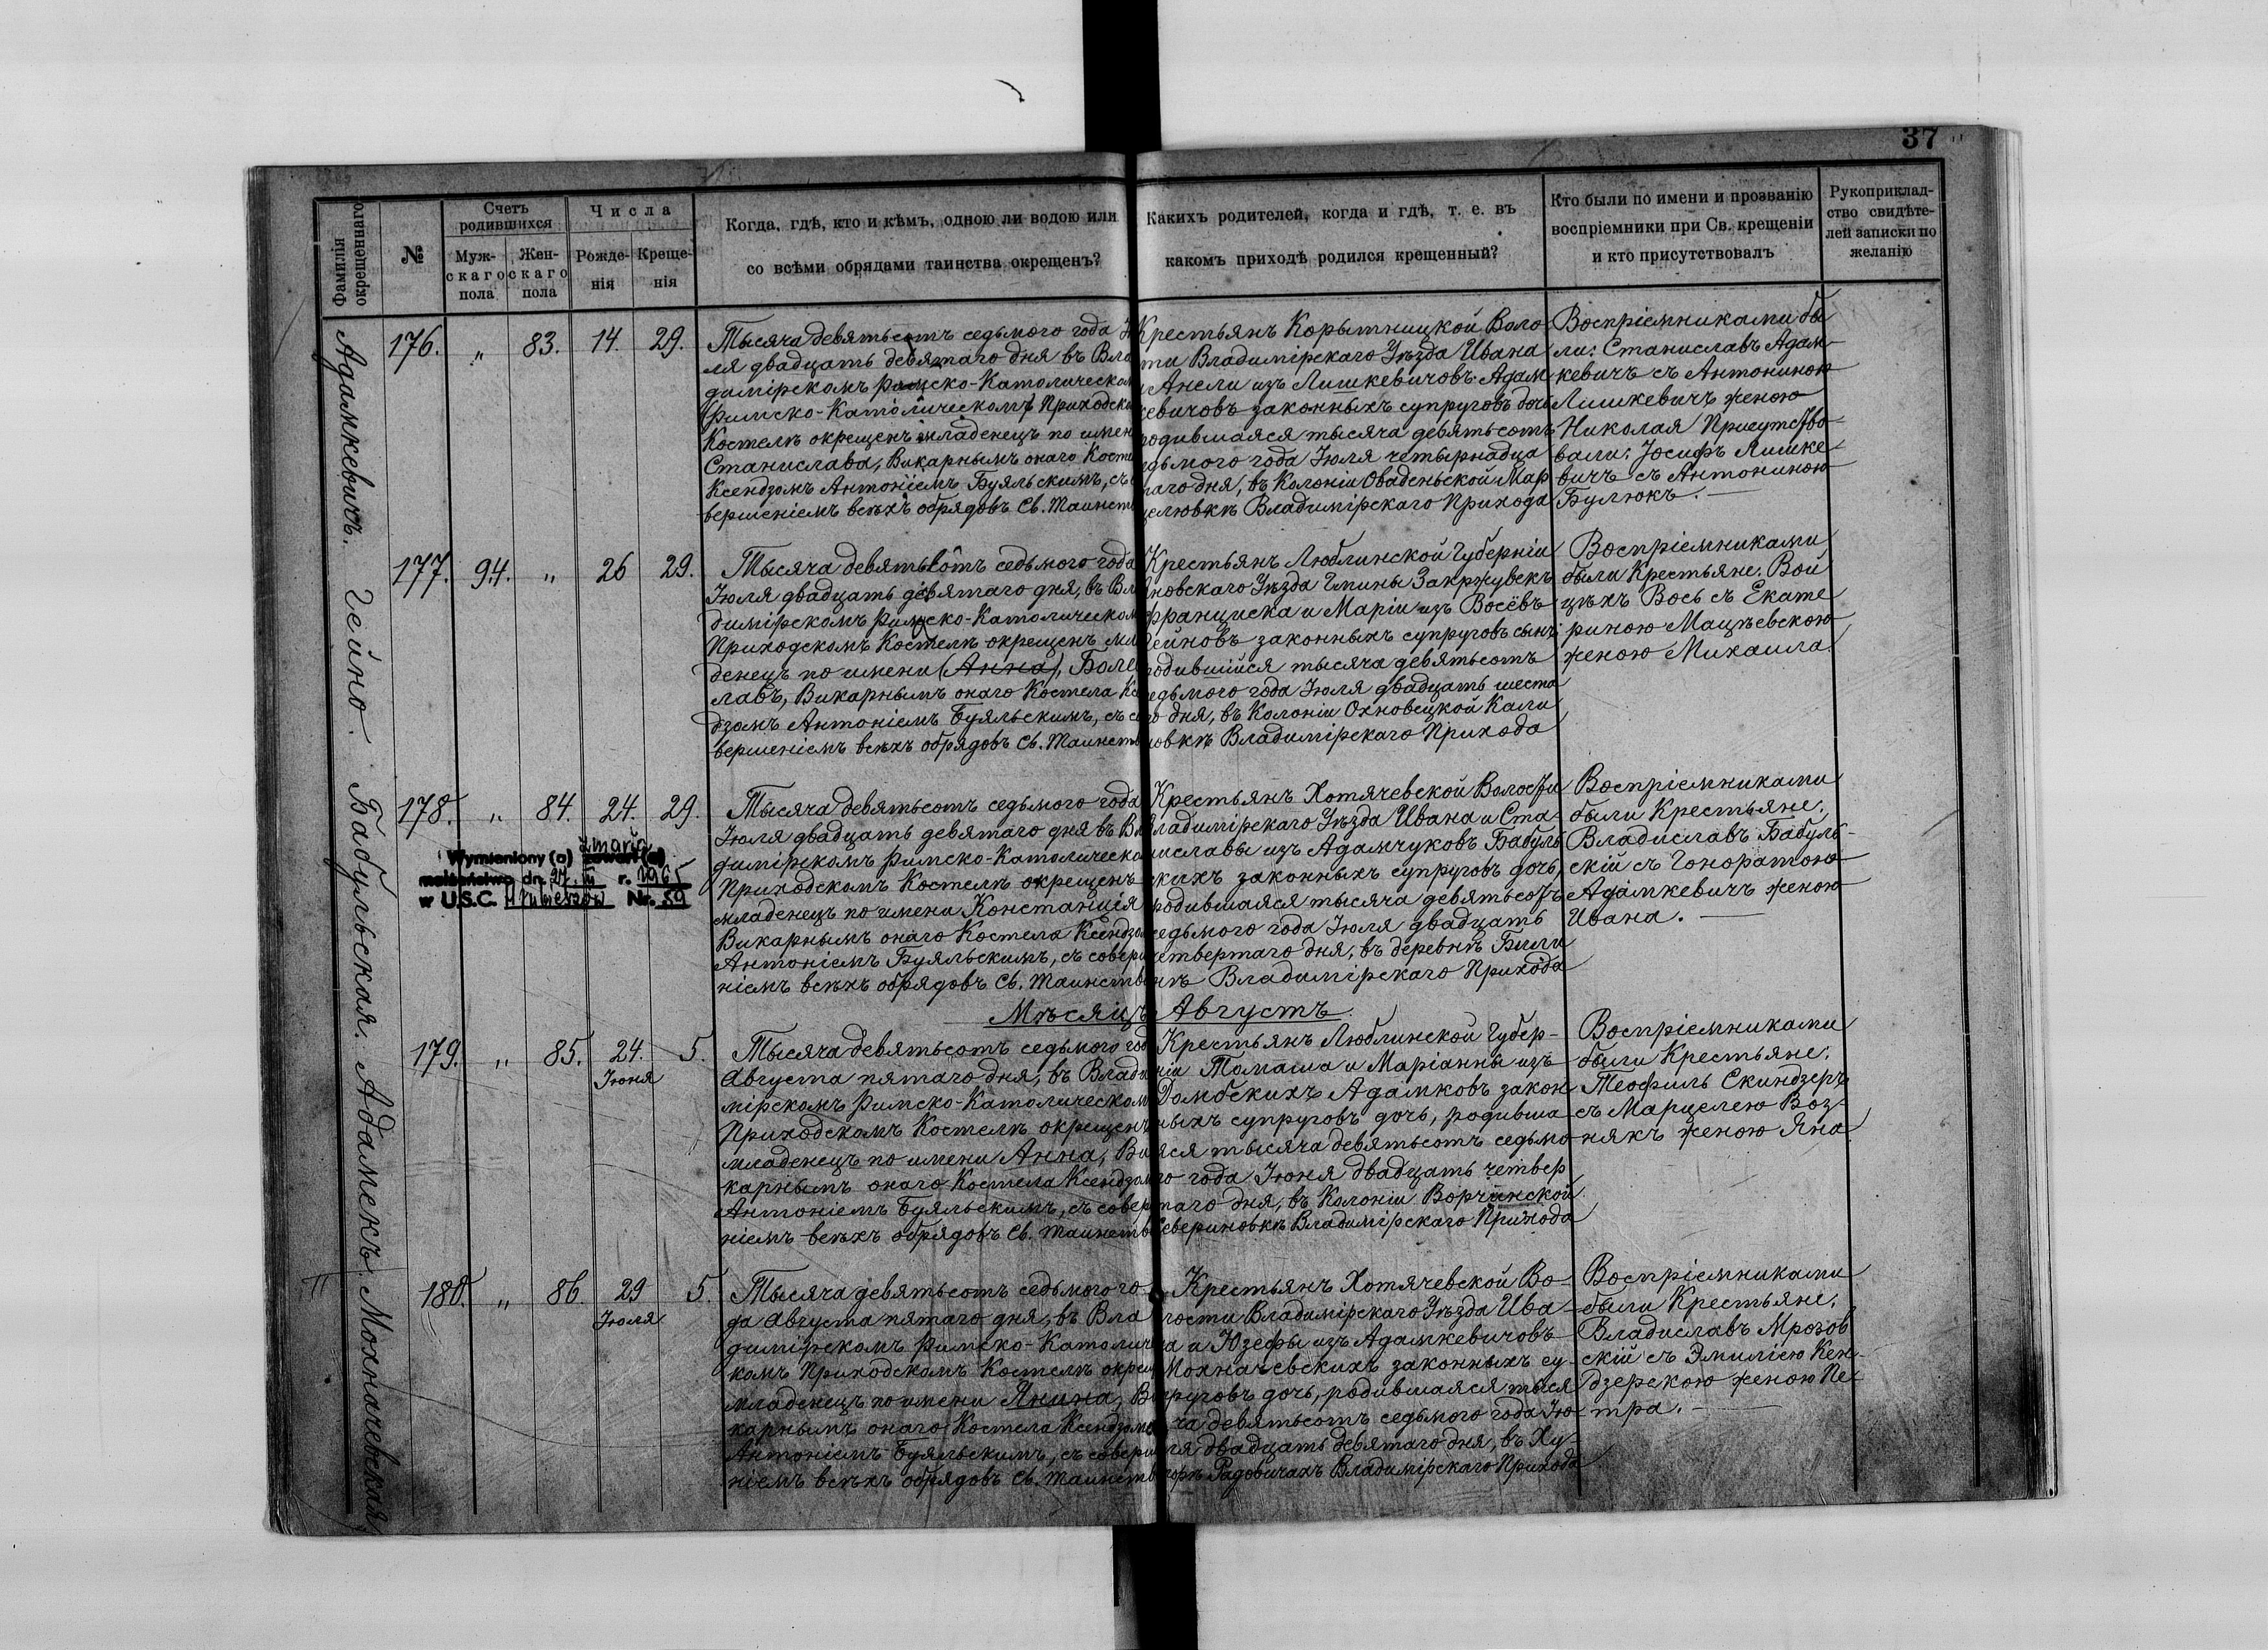 37
Фамилія окрещеннаго
№
Счетъ родившихся
Мужскаго пола
Женскаго пола
Числа
Рожденія
Крещенія
Когда, гдѣ, кто и кѣмъ, одною ли водою или
со всѣми обрядами таинства окрещенъ?
Какихъ родителей, когда и гдѣ, т. е. въ
какомъ приходѣ родился крещенный?
Кто были по имени и прозванію
воспріемники при Св. крещеніи
и кто присутствовалъ
Рукоприклад-
ство свидѣте-
лей записки по
желанію
Адамкевичъ.
176. " 83. 14. 29.
Тысяча девятьсотъ седьмого года
ля двадцать девятаго дня въ Вла
димірскомъ римско-Католическом
Римско-Католическомъ Приходско
Костелѣ окрещенъ младенецъ по имен
Станислава, Викарнымъ онаго Косте
Ксендзомъ Антоніемъ Буяльскимъ, съ
вершеніемъ всѣхъ обрядовъ Св. Таинст
Крестьянъ Корытницкой Воло
ти Владимірскаго Уѣзда Ивана
и Анели изъ Лишкевичовъ Адам
кевичовъ законныхъ супруговъ дочь
родившаяся тысяча девятьсотъ
едьмого года Іюля четырнадца
таго дня, въ Колоніи Оваденьской Мар
целювкѣ Владимірскаго Прихода
Воспріемниками бы
ли: Станиславъ Адам-
кевичъ съ Антониною
Лишкевичъ женою
Николая Присутство-
вали: Іосифъ Лишке-
вичъ съ Антониною
Булюкъ.
Гейно.
177. 94. " 26 29.
Тысяча девятьсотъ седьмого года
Іюля двадцать девятаго дня, въ Вла
димірскомъ Римско-Католическом
Приходскомъ Костелѣ окрещенъ мла
денецъ по имени (Анна), Боле
лавъ, Викарнымъ онаго Костела Ксе
дзомъ Антоніемъ Буяльскимъ, съ со
вершеніемъ всѣхъ обрядовъ Св. Таинств
Крестьянъ Люблинской Губерніи
Яновскаго Уѣзда Гмины Закржувекъ
Франциска и Маріи изъ Восёвъ
Гейновъ законныхъ супруговъ сынъ
родившійся тысяча девятьсотъ
едьмого года Іюля двадцать шеста
го дня, въ Колоніи Охновецкой Кали
новкѣ Владимірскаго Прихода
Воспріемниками
были Крестьяне: Вой
цѣхъ Вось съ Екате
риною Мацѣевскою
женою Михаила.
Бабульская.
178. " 84. 24. 29.
Wymieniony (a) zawarł (a)
zmarła
małżeństwo dn. 27. III r. 1965
w U.S.C. Nr. 59
Тысяча девятьсотъ седьмого года
Іюля двадцать девятаго дня въ Вл
димірскомъ Римско-Католическо
Приходскомъ Костелѣ окрещенъ
младенецъ по имени Констанція
Викарнымъ онаго Костела Ксендзо
Антоніемъ Буяльскимъ, съ соверш
ніемъ всѣхъ обрядовъ Св. Таинств
Крестьянъ Хотячевской Волости
ладимірскаго Уѣзда Ивана и Ста-
ниславы изъ Адамчуковъ Бабуль
скихъ законныхъ супруговъ дочь,
родившаяся тысяча девятьсотъ
седьмого года Іюля двадцать
четвертаго дня, въ деревнѣ Били
нѣ Владимірскаго Прихода
Воспріемниками
были Крестьяне:
Владиславъ Бабуль-
скій съ Гоноратою
Адамкевичъ женою
Ивана.
Мѣсяцъ Августъ.
Адамекъ.
179. " 85. 24. Іюня 5.
Тысяча девятьсотъ седьмого год
Августа пятаго дня, въ Влади
мірскомъ Римско-Католическом
Приходскомъ Костелѣ окрещенъ
младенецъ по имени Анна, Ви
карнымъ онаго Костела Ксендзом
Антоніемъ Буяльскимъ, съ совер
ніемъ всѣхъ обрядовъ Св. Таинств
Крестьянъ Люблинской Губер-
ніи Томаша и Маріанны изъ
Домбскихъ Адамковъ закон
ныхъ супруговъ дочь, родивша
яся тысяча девятьсотъ седьмо
го года Іюня двадцать четвер
таго дня, въ Колоніи Ворчинской
Севериновкѣ Владимірскаго Прихода
Воспріемниками
были Крестьяне:
Теофиль Скиндзеръ
съ Марцелею Воз-
някъ женою Яна.
Мохначевская
180. " 86. 29 Іюля 5.
Тысяча девятьсотъ седьмого го-
да Августа пятаго дня, въ Вла
димірскомъ Римско-Католич
комъ Приходскомъ Костелѣ окрещ
младенецъ по имени Янина, Ви
карнымъ онаго Костела Ксендзомъ
Антоніемъ Буяльскимъ, съ соверш
ніемъ всѣхъ обрядовъ Св. Таинств
Крестьянъ Хотячевской Во-
лости Владимірскаго Уѣзда Ива-
на и Юзефы изъ Адамкевичовъ
Мохначевскихъ законныхъ су-
пруговъ дочь, родившаяся тыся
ча девятьсотъ седьмого года Ію-
ля двадцать девятаго дня, въ Ху-
торѣ Радовичахъ Владимірскаго Прихода
Воспріемниками
были Крестьяне:
Владиславъ Мрозов
скій съ Эмиліею Кен-
дзерскою женою Пе-
тра.